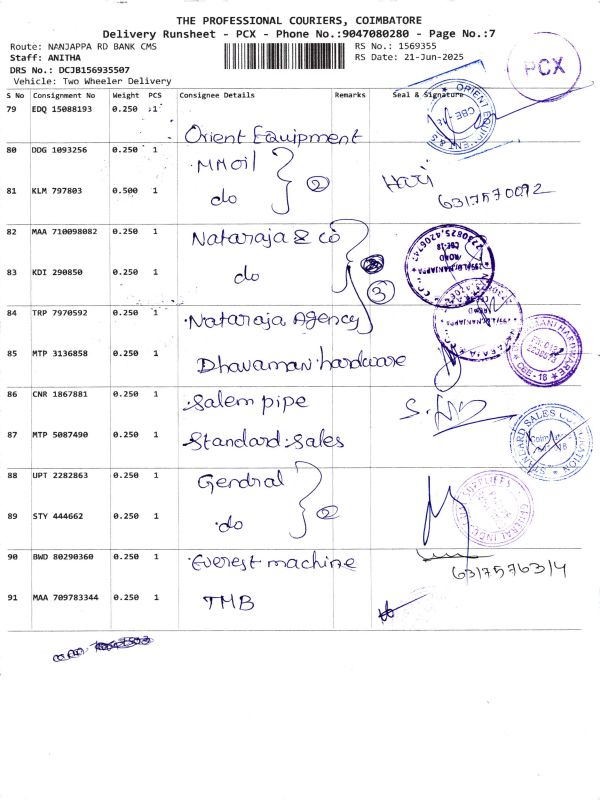 THE PROFESSIONAL COURIERS, COIMBATORE
Delivery Runsheet - PCX - Phone No.:9047080280 - Page No.:7
Route: NANJAPPA RD BANK CMS
RS No.: 1569355
Staff: ANITHA
RS Date: 21-Jun-2025
DRS No.: DCJB156935507
Vehicle: Two Wheeler Delivery
PCX
S No Consignment No Weight PCS Consignee Details Remarks Seal & Signature
79 EDQ 15088193 0.250 1
Orient Equipment
80 DDG 1093256 0.250 1 MM oil
81 KLM 797803 0.500 1 do 2 Hari
6317570092
82 MAA 710098082 0.250 1 Nataraja & co
83 KDI 290850 0.250 1 do
3
84 TRP 7970592 0.250 1 Nataraja Agency
85 MTP 3136858 0.250 1 Dhavamani hardware
86 CNR 1867881 0.250 1 Salem pipe
87 MTP 5087490 0.250 1 Standard Sales
STANDARD SALES CORPORATION
88 UPT 2282863 0.250 1 Gendral
89 STY 444662 0.250 1 do 2
90 BWD 80290360 0.250 1 Everest machine
6317576314
91 MAA 709783344 0.250 1 TMB